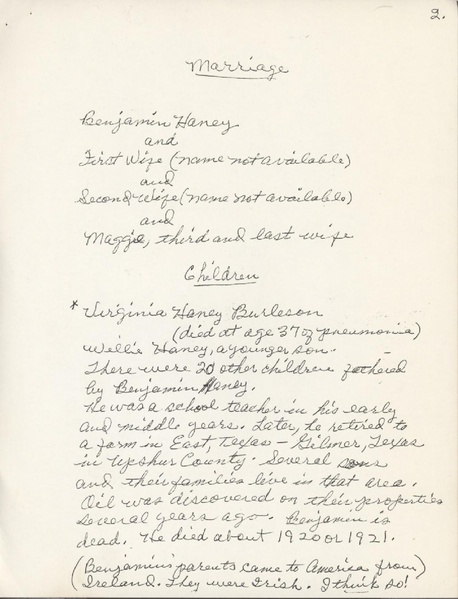 2.
Marriage
Benjamin Haney
and
First Wife (name not available)
and
Second Wife (name not available)
and
Maggie, third and last wife
Children
* Virginia Haney Burleson
(died at age 37 of pneumonia)
Willie Haney, a younger son.
There were 20 other children fathered
by Benjamin Haney.
He was a school teacher in his early
and middle years. Later, he retired to
a farm in East, Texas - Gilmer, Texas
in Upshur County. Several sons
and their families live in that area.
Oil was discovered on their properties
several years ago. Benjamin is
dead. He died about 1920 or 1921.
(Benjamin's parents came to America from)
Ireland. They were Irish. I think so!